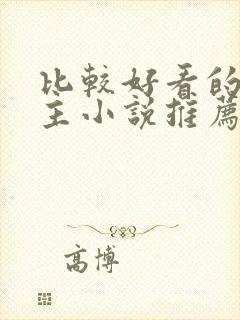 比較好看的
主小說推薦
高博